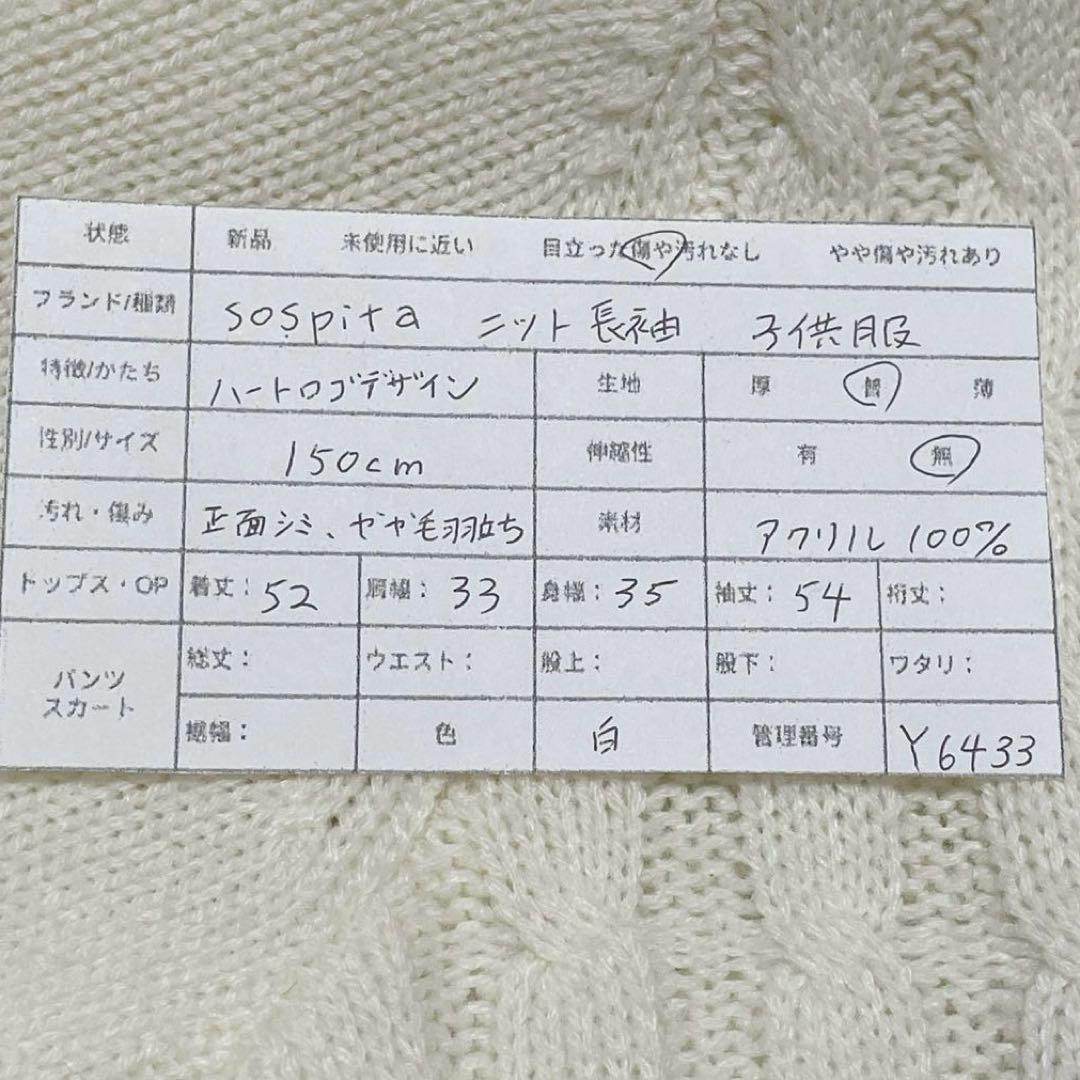 状態 新品 未使用に近い 目立った傷や汚れなし やや傷や汚れあり
ブランド/種類 sospita ニット 長袖 子供服
特徴/かたち ハートロゴデザイン 生地 厚 普 薄
性別/サイズ 150cm 伸縮性 有 無
汚れ・傷み 正面シミ、やや毛羽立ち 素材 アクリル 100%
トップス・OP 着丈：52 肩幅：33 身幅：35 袖丈：54 裄丈：
パンツ スカート 総丈： ウエスト： 股上： 股下： ワタリ：
裾幅： 色 白 管理番号 Y6433